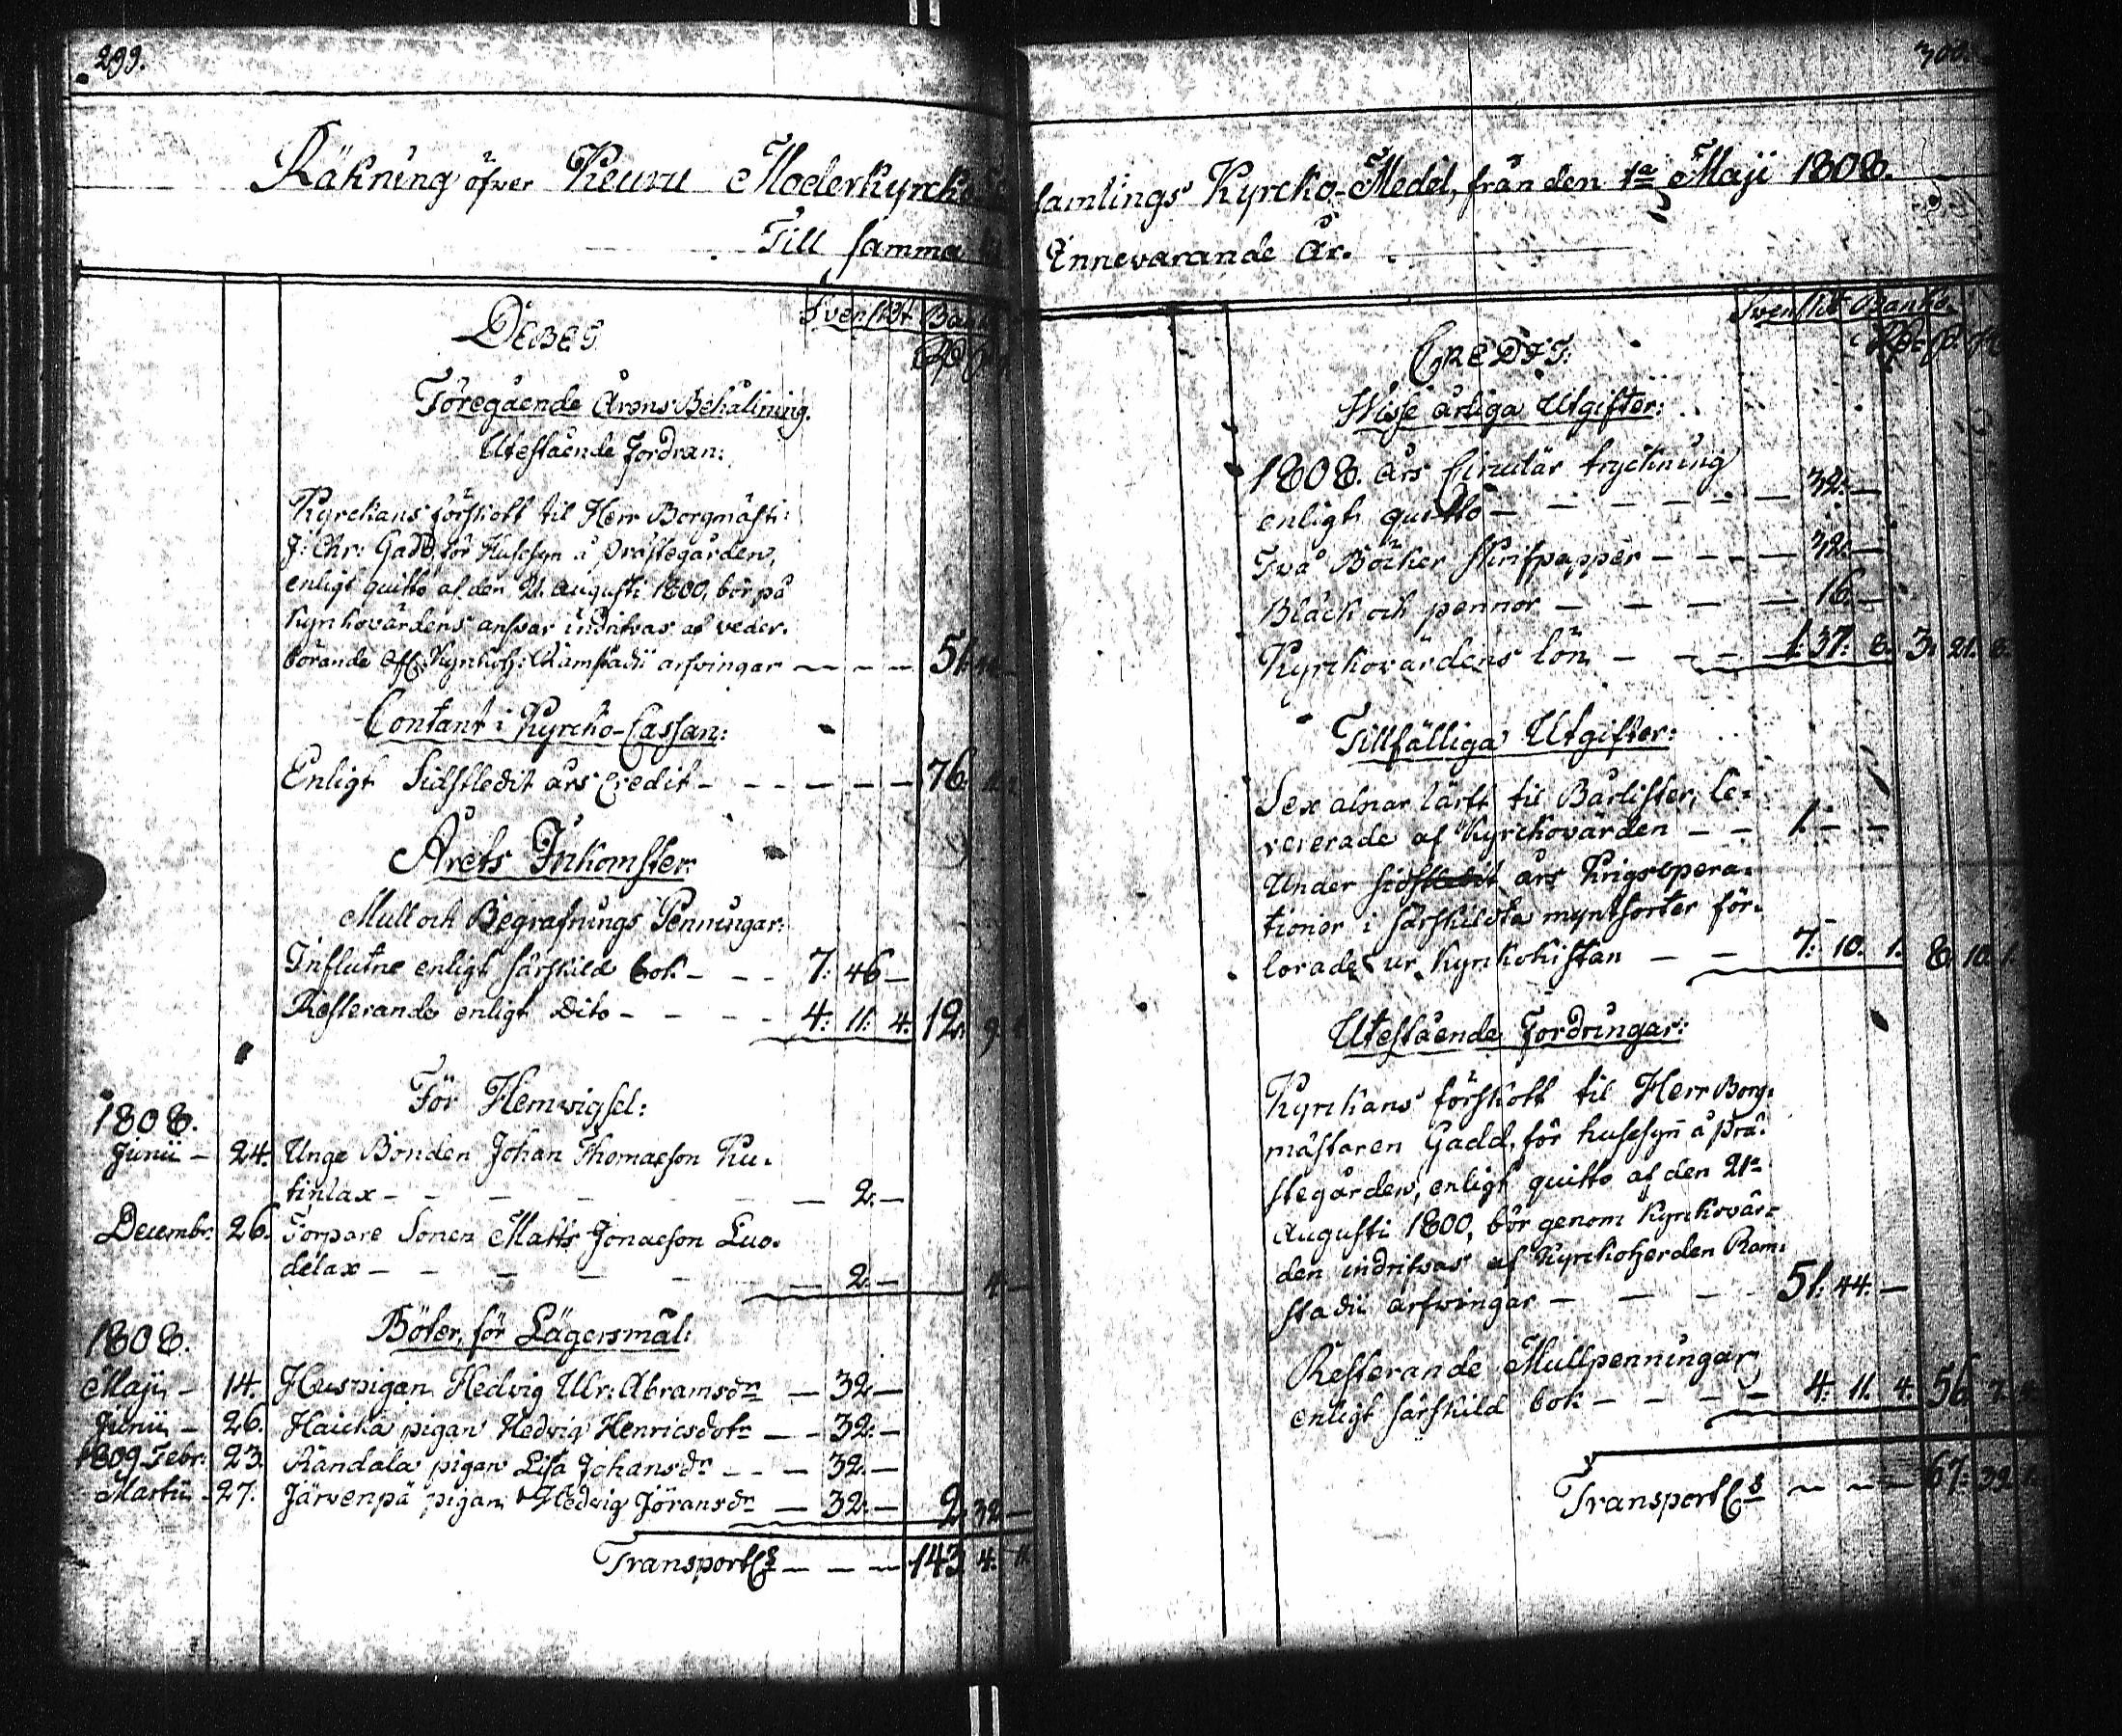 299.
Räkning öfver Keuru Moderkyrcko
Till samma
DEBET.
Svenskt Banko
Föregående Årens Behållning.
Utestående Fordran:
Kyrckans förskott til Herr Borgmästr:
J: Chr: Gadd, för Husesyn å prästegården,
enligt quitto af den 21. Augusti 1800, bör på
Kyrckovärdens ansvar indrifvas af veder-
börande Kyrckoh: Ramstadii arfvingar — — — 51. 44. —
Contant i Kyrcko-Cassan:
Enligt Sidstledit års Credit — — — — — 76.
Årets Inkomster:
Mull och Begrafnings Penningar:
Influtne enligt särskild bok — — — 7: 46 —
Resterande enligt dito — — — — 4: 11: 4. 12. 9.
För Hemvigsel:
1808.
Junii — 24. Unge Bonden Johan Thomaeson Ku-
tinlax — — — — — — 2. —
Decembr: 26. Torpare Sonen Matts Jonaeson Luo-
delax — — — — — — 2. — 4. —
Böter för Lägersmål:
1808.
Maji — 14. Huspigan Hedvig Ulr: Abramsdr — 32. —
Junii — 26. Haicka pigan Hedvig Henricsdotr — — 32. —
1809 Febr: 23. Rändälä pigan Lisa Johansdr — — — 32. —
Martii — 27. Järvenpä pigan Hedvig Jöransdr — 32. — 2. 32. —
Transport — — — 143. 4.
300.
samlings Kyrcko-Medel, från den 1a Maji 1808.
innevarande År.
CREDIT:
Svenskt Banko.
Rd. s. r.
Wisse årliga Utgifter:
1808. års Cirkulär tryckning
enligt quitto — — — — — — 32. —
Två Böcker skrifpapper — — — — 32. —
Bläck och pennor — — — — — 16. —
Kyrckovärdens lön — — — 1. 37. 8. 3. 21. 8.
Tillfälliga Utgifter:
Sex alnar lärft til Bårlister, le-
vererade af Kyrckovärden — — 1. — —
Under sidstledit års Krigsopera-
tioner i särskildta myntsorter för-
lorade ur Kyrckokistan — — 7. 10. 1. 8. 10. 1.
Utestående Fordringar:
Kyrckans förskott til Herr Borg-
mästaren Gadd, för husesyn å prä-
stegården, enligt quitto af den 21a
Augusti 1800, bör genom Kyrckovär-
den indrifvas af Kyrckoherden Ram-
stadii arfvingar — — — — 51. 44. —
Resterande Mullpenningar
enligt särskild bok — — — — 4. 11. 4. 56. 7.
Transport — — — 67. 39.